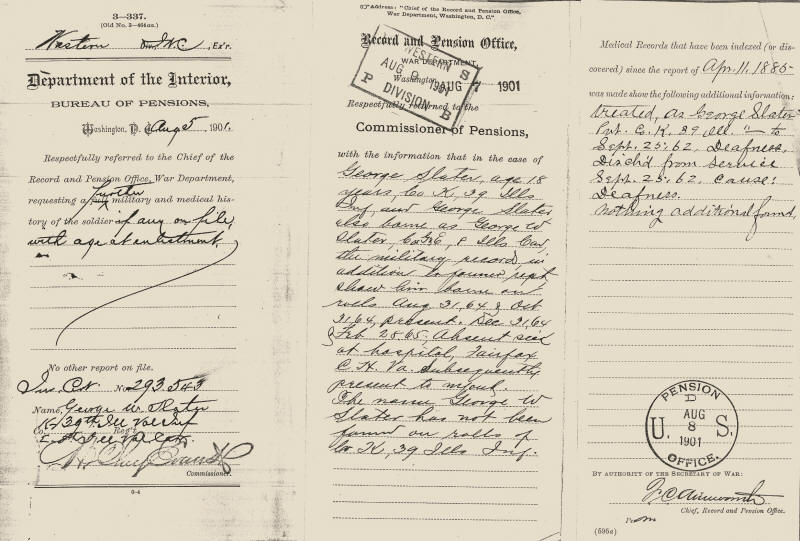 3—337.
(Old No. 3—464 a.)
Western Div. I.V.C, Ex'r.
Department of the Interior,
BUREAU OF PENSIONS,
Washington, D. C., Aug 5, 1901.
Respectfully referred to the Chief of the
Record and Pension Office, War Department,
further
requesting a full military and medical his-
tory of the soldier if any on file,
with age at enlistment.
No other report on file.
Inv. Ctf. No. 293.543
Name, George W. Slater
K. 39th Ill Vol Inf
Co. Reg't
Ill Vol Cav.
Commissioner.
6-4
Address: "Chief of the Record and Pension Office,
War Department, Washington, D. C."
Record and Pension Office,
WAR DEPARTMENT,
Washington, AUG 7 1901
WESTERN
AUG 9 1901
P DIVISION B
S
Respectfully returned to the
Commissioner of Pensions,
with the information that in the case of
George Slater, age 18
years, Co K, 39 Ills
Inf, and George Slater
also borne as George W
Slater, Co E, 8 Ills Cav,
the military record, in
addition to former rept
show him borne on
rolls Aug 31,64 & Oct
31,64, present. Dec 31,64
& Feb 28,65, Absent sick
at hospital, Fairfax
C. H. Va. subsequently
present to m'out.
The name George W
Slater has not been
found on rolls of
Co K, 39 Ills Inf.
Medical Records that have been indexed (or dis-
covered) since the report of Apr. 11, 1885
was made show the following additional information:
treated, as George Slater
Pvt. Co. K. 39 Ill. "— to
Sept. 25; 62, Deafness,
Disch'd from service
Sept. 25; 62, Cause:
Deafness.
nothing additional found,
PENSION
D
AUG
8
U. S.
1901
OFFICE.
BY AUTHORITY OF THE SECRETARY OF WAR:
F. C. Ainsworth
Chief, Record and Pension Office.
Per
(595a)